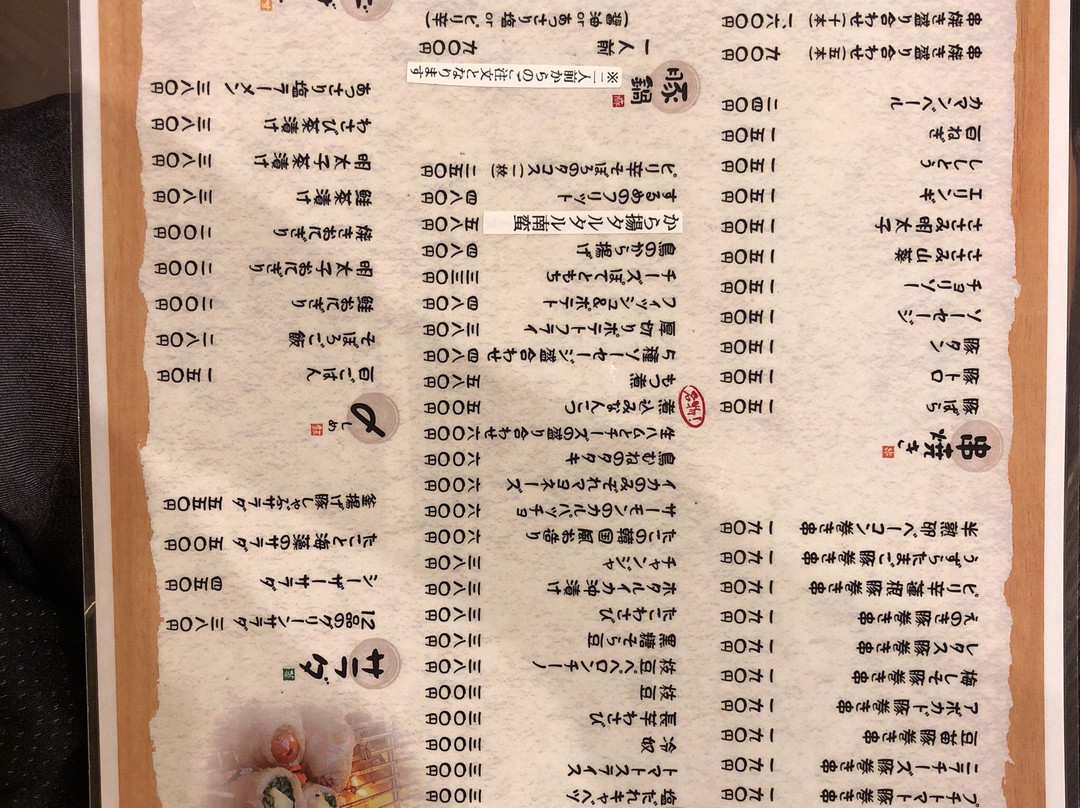 プチトマト豚巻き串 一九〇円
ニラチーズ豚巻き串 一九〇円
豆苗豚巻き串 一九〇円
アボカド豚巻き串 一九〇円
梅しそ豚巻き串 一九〇円
レタス豚巻き串 一九〇円
えのき豚巻き串 一九〇円
ピリ辛蓮根豚巻き串 一九〇円
うずらたまご豚巻き串 一九〇円
半熟卵ベーコン巻き串 一九〇円
串焼き
豚ばら 一五〇円
豚トロ 一五〇円
豚タン 一五〇円
ソーセージ 一五〇円
チョリソー 一五〇円
ささみ山葵 一五〇円
ささみ明太子 一五〇円
エリンギ 一五〇円
ししとう 一五〇円
白ねぎ 一五〇円
カマンベール 二四〇円
串焼き盛り合わせ(五本) 九〇〇円
串焼き盛り合わせ(十本) 一六〇〇円
塩だれキャベツ 三〇〇円
トマトスライス 三〇〇円
冷奴 三〇〇円
長芋わさび 三〇〇円
枝豆 三〇〇円
枝豆ペペロンチーノ 三八〇円
黒糖そら豆 三八〇円
たこわさび 三八〇円
ホタルイカ沖漬け 三八〇円
チャンジャ 三八〇円
たこの韓国風お造り 六〇〇円
サーモンのカルパッチョ 六〇〇円
イカのみぞれマヨネーズ 六〇〇円
鳥むねのタタキ 六〇〇円
生ハムとチーズの盛り合わせ 六〇〇円
煮込みなんこつ 五〇〇円
もつ煮 五八〇円
5種ソーセージ盛合わせ 四八〇円
厚切りポテトフライ 三八〇円
フィッシュ&ポテト 四八〇円
チーズぽてともち 三三〇円
鳥のから揚げ 四八〇円
から揚タルタル南蛮 五八〇円
するめのフリット 四八〇円
ピリ辛そぼろのタコス(二枚) 五五〇円
豚鍋
※二人前からのご注文となります
一人前 九〇〇円
(醤油orあっさり塩orピリ辛)
サラダ
12品のグリーンサラダ 三八〇円
シーザーサラダ 四五〇円
たこと海藻のサラダ 五〇〇円
釜揚げ豚しゃぶサラダ 五五〇円
〆
しめ
白ごはん 一五〇円
そぼろご飯 二八〇円
鮭おにぎり 二〇〇円
明太子おにぎり 二〇〇円
焼きおにぎり 二〇〇円
鮭茶漬け 三八〇円
明太子茶漬け 三八〇円
わさび茶漬け 三八〇円
あっさり塩ラーメン 三八〇円